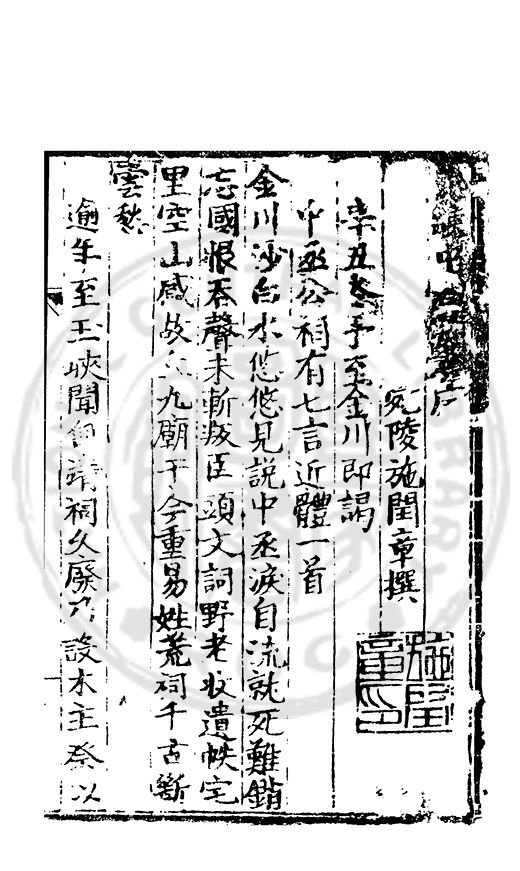 中序
宛陵施閏章撰
施閏章印
辛丑冬予至金川即謁
中丞公祠有七言近體一首
金川沙白水悠悠見説中丞淚自流就死難銷
忘國恨吞聲未斬叛臣頭文詞野老收遺帙宅
里空山感故丘九廟于今重易姓荒祠千古斷
雲愁
逾年至玉峽聞祠久廢乃設木主祭以